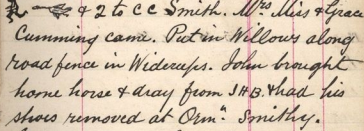 & 2 to CC Smith. Mrs Miss & Grace
Cumming came. Put in Willows along
road fence in Widerups. John brought
home horse & dray from SHB. & had his
shoes removed at Orm<sup>n.</sup> Smithy.